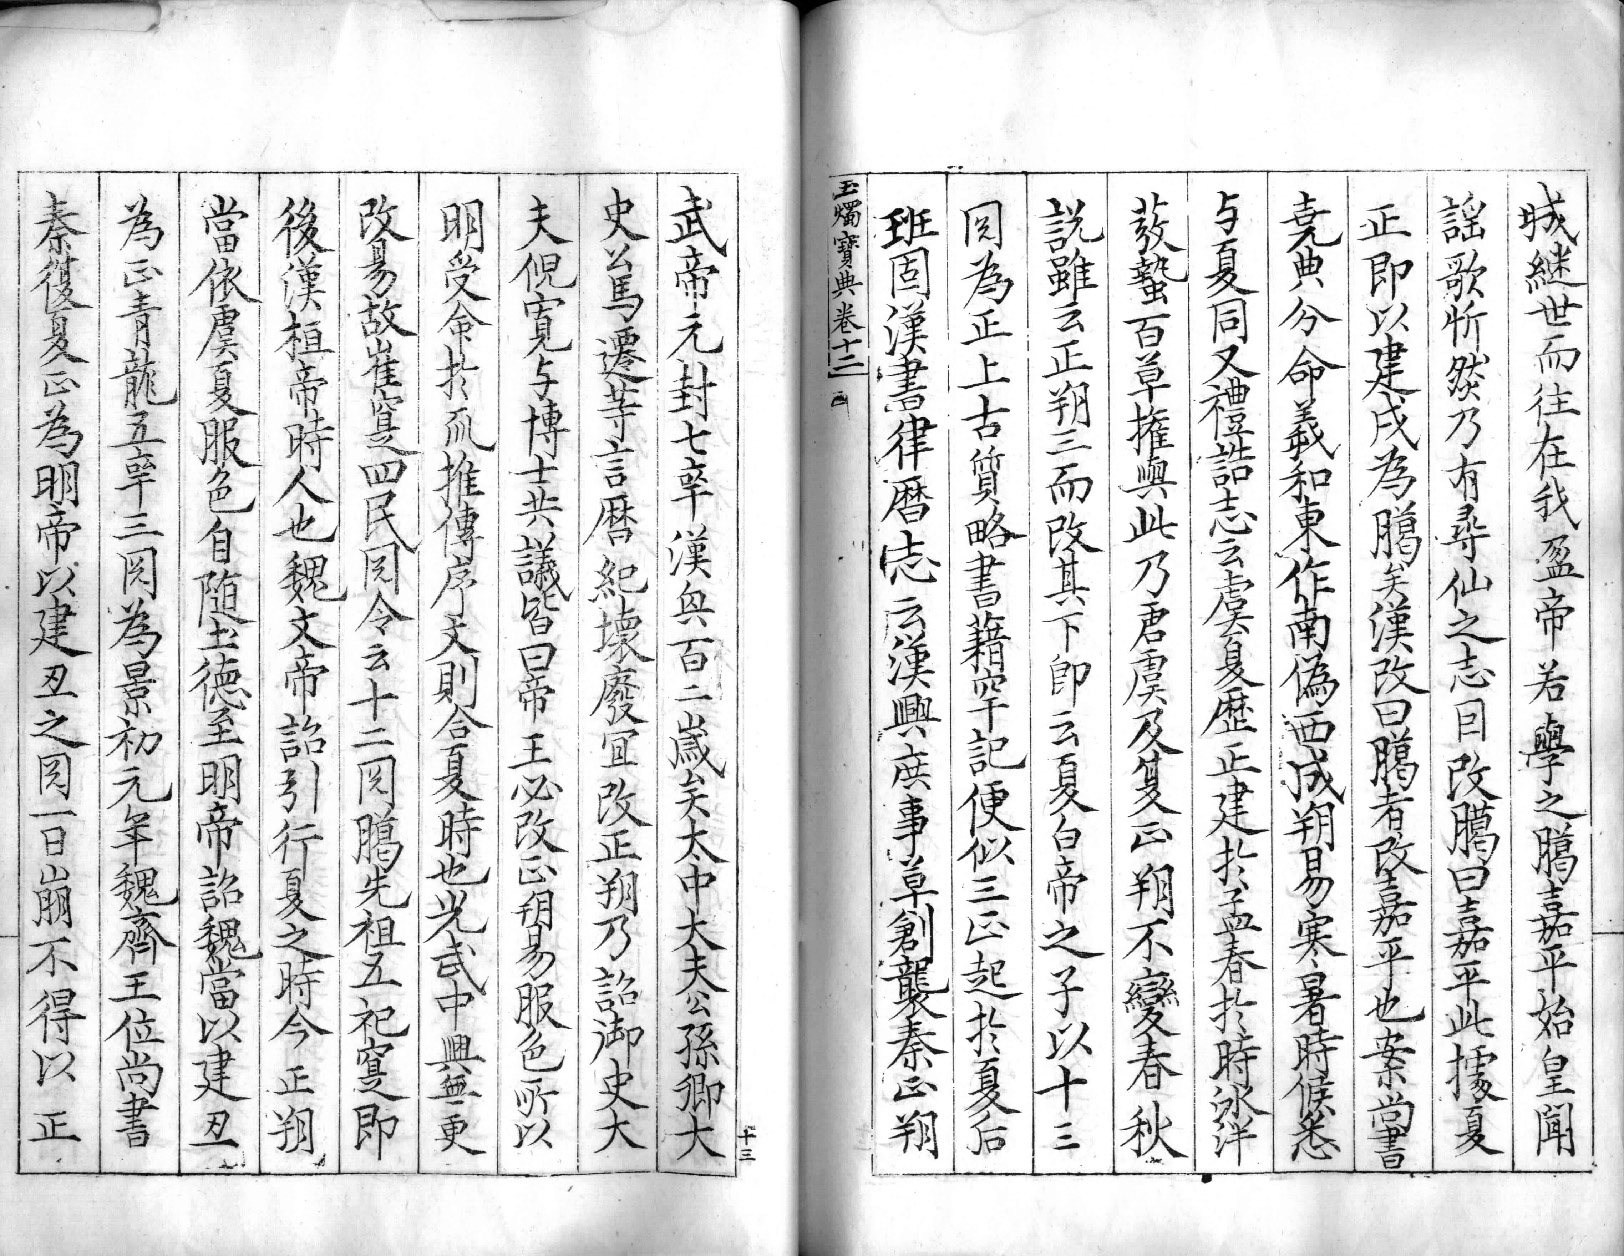 城継世而往在我盈帝若學之臈嘉平始皇聞
謡歌忻然乃有尋仙之志曰改臈曰嘉平此據夏
正即以建戌為臈矣漢改曰臈者改嘉平也案尚書
堯典分命羲和東作南偽西成朔易寒暑時候悉
与夏同又禮誥志云虞夏歷正建於孟春於時氷泮
發蟄百草摧輿此乃君虞及夏正朔不變春秋
説雖云正朔三而改其下即云夏白帝之子以十三
月為正上古質略書藉罕記便似三正起於夏后
班固漢書律暦志云漢興庶事草創襲秦正朔
玉燭寶典卷十二
武帝元封七年漢興百二歳矣太中大夫公孫卿大
史公馬遷等言暦紀壊廢宜改正朔乃詔御史大
夫倪寬与博士共議皆曰帝王必改正朔易服色所以
明受命於爪推傳序文則合夏時也光武中興無更
改易故崔寔四民月令云十二月臈先祖五祀寔即
後漢桓帝時人也魏文帝詔引行夏之時今正朔
當依虞夏服色自随土德至明帝詔魏當以建丑
為正青龍五年三月為景初元年魏齊王位尚書
秦復夏正為明帝以建丑之月一日崩不得以正
十三